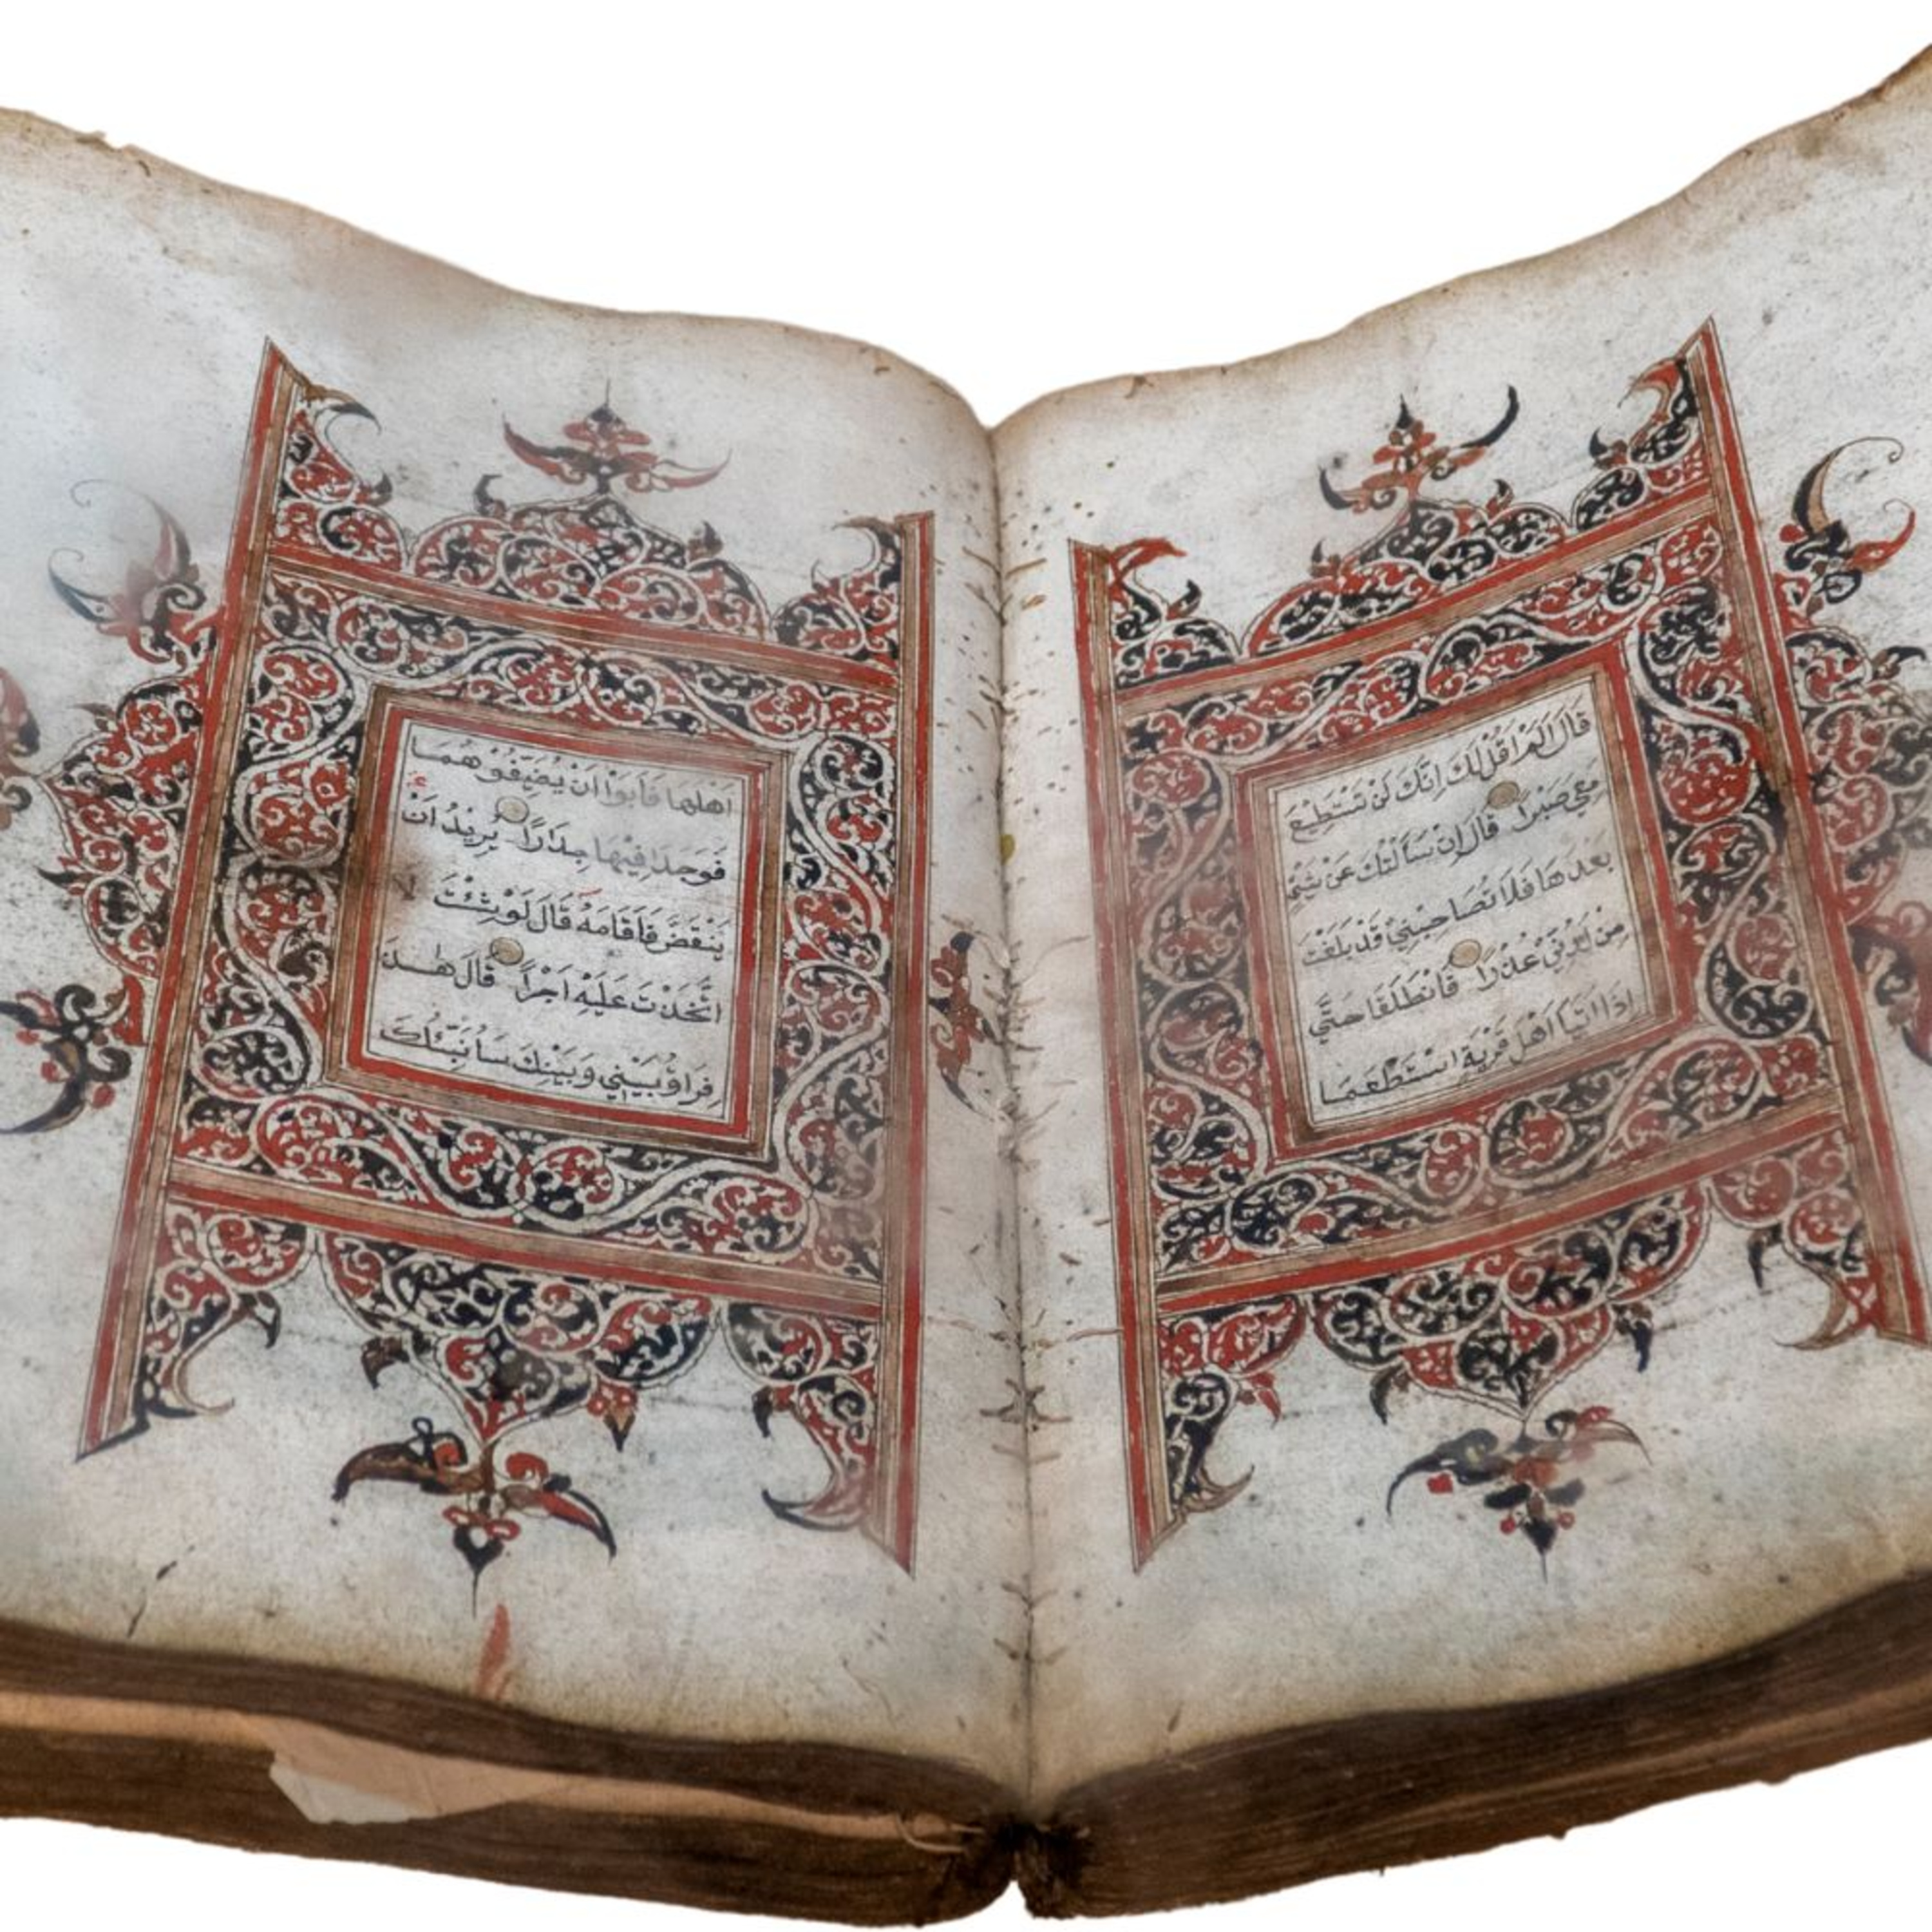 قَالَ اَلَمْ اَقُلْ لَكَ اِنَّكَ لَنْ تَسْتَطِيْعَ
مَعِيَ صَبْرًا قَالَ اِنْ سَاَلْتُكَ عَنْ شَيْءٍ
بَعْدَهَا فَلَا تُصَاحِبْنِيْ قَدْ بَلَغْتَ
مِنْ لَدُنِّيْ عُذْرًا فَانْطَلَقَا حَتَّي
اِذَا اَتَيَا اَهْلَ قَرْيَةٍ اسْتَطْعَمَا
اَهْلَهَا فَاَبَوْا اَنْ يُضَيِّفُوْهُمَا
فَوَجَدَا فِيْهَا جِدَارًا يُرِيْدُ اَنْ
يَنْقَضَّ فَاَقَامَهُ قَالَ لَوْ شِئْتَ
اتَّخَذْتَ عَلَيْهِ اَجْرًا قَالَ هٰذَ
فِرَاقُ بَيْنِيْ وَبَيْنِكَ سَاُنَبِّئُكَ